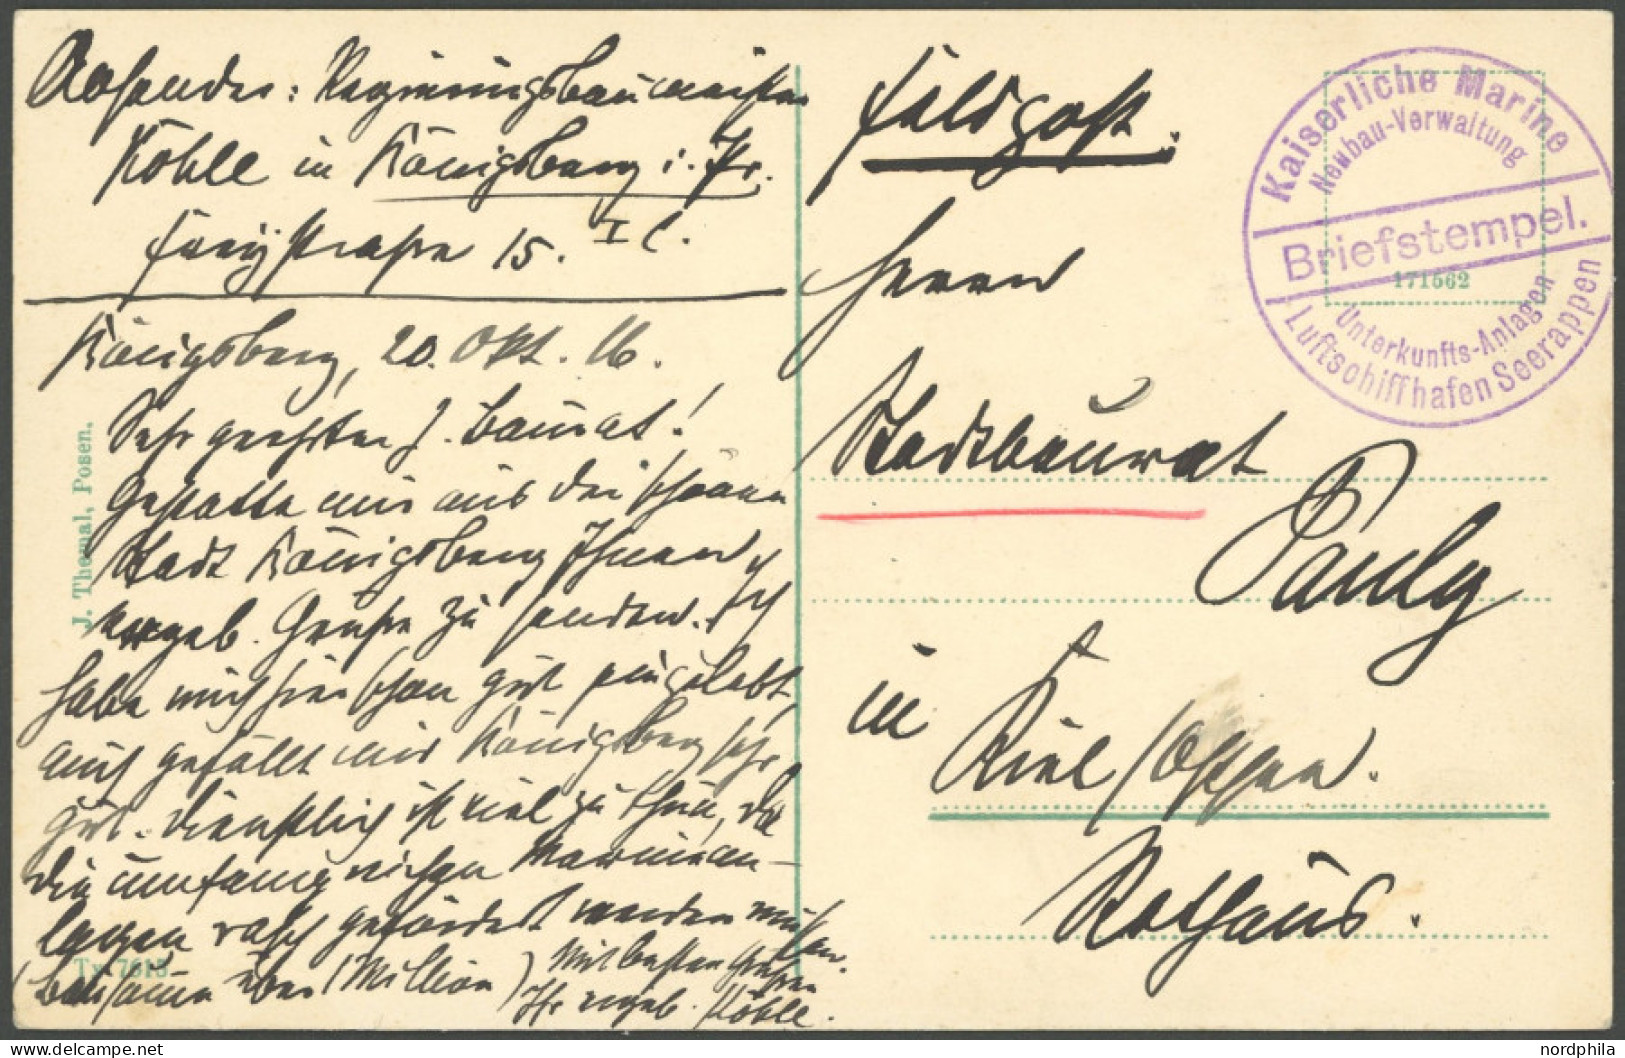 Absender: Regierungsbaumeister
Köhle in Königsberg i. Pr.
straße 15. I l.
Königsberg, 20. Okt. 16.
Sehr geehrter H. Baurat!
Gestatte mir aus der schönen
Stadt Königsberg Ihnen
ergeb. Grüße zu senden. Ich
habe mich hier schon gut eingelebt,
auch gefällt mir Königsberg sehr
gut. Dienstlich ist viel zu thun, da
die umfangreichen Marinean-
lagen rasch gefördert werden müssen.
(Bausumme über 1 Million) Mit besten Grüßen
Ihr ergeb. Köhle.
J. Themal, Posen.
Tx 7615
Feldpost.
Herrn
Stadtbaurat
Pauly
in
Kiel/Ostsee.
Rathaus.
Kaiserliche Marine
Neubau-Verwaltung
Briefstempel.
171562
Unterkunfts-Anlagen
Luftschiffhafen Seerappen
nordphila